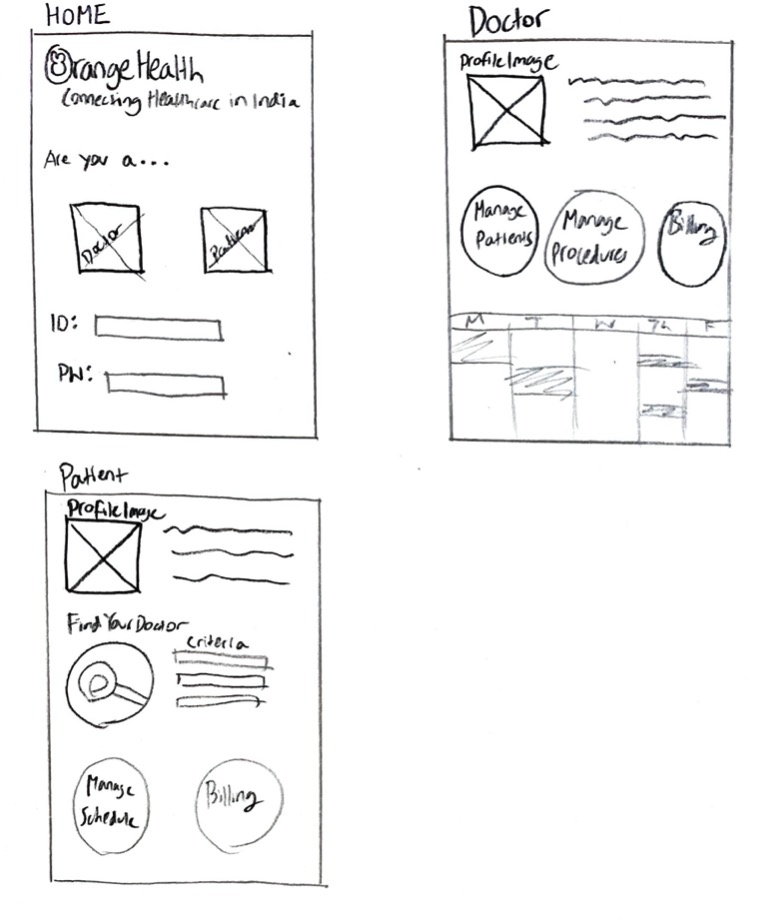 HOME
OrangeHealth
Connecting Healthcare in India
Are you a...
Doctor
Patient
ID:
PW:
Doctor
ProfileImage
Manage
Patients
Manage
Procedures
Billing
M T W Th F
Patient
ProfileImage
Find Your Doctor
Criteria
Manage
Schedule
Billing